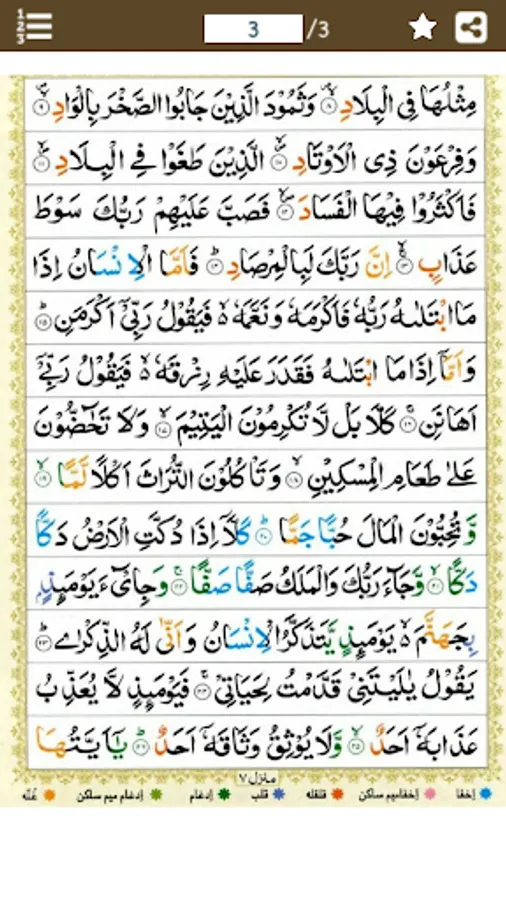 3 /3
مِثْلُهَا فِى الْبِلَادِ ۝٨ وَثَمُوْدَ الَّذِيْنَ جَابُوا الصَّخْرَ بِالْوَادِ ۝٩
وَفِرْعَوْنَ ذِى الْاَوْتَادِ ۝١٠ الَّذِيْنَ طَغَوْا فِى الْبِلَادِ ۝١١
فَاَكْثَرُوْا فِيْهَا الْفَسَادَ ۝١٢ فَصَبَّ عَلَيْهِمْ رَبُّكَ سَوْطَ
عَذَابٍ ۝١٣ اِنَّ رَبَّكَ لَبِالْمِرْصَادِ ۝١٤ فَاَمَّا الْاِنْسَانُ اِذَا
مَا ابْتَلٰىهُ رَبُّهٗ فَاَكْرَمَهٗ وَنَعَّمَهٗ ۙ فَيَقُوْلُ رَبِّىْٓ اَكْرَمَنِ ۝١٥
وَاَمَّآ اِذَا مَا ابْتَلٰىهُ فَقَدَرَ عَلَيْهِ رِزْقَهٗ ۙ فَيَقُوْلُ رَبِّىْٓ
اَهَانَنِ ۝١٦ كَلَّا بَلْ لَّا تُكْرِمُوْنَ الْيَتِيْمَ ۝١٧ وَلَا تَحٰٓضُّوْنَ
عَلٰى طَعَامِ الْمِسْكِيْنِ ۝١٨ وَتَاْكُلُوْنَ التُّرَاثَ اَكْلًا لَّمًّا ۝١٩
وَّتُحِبُّوْنَ الْمَالَ حُبًّا جَمًّا ۝٢٠ كَلَّآ اِذَا دُكَّتِ الْاَرْضُ دَكًّا
دَكًّا ۝٢١ وَّجَآءَ رَبُّكَ وَالْمَلَكُ صَفًّا صَفًّا ۝٢٢ وَجِاىْٓءَ يَوْمَىِٕذٍۭ
بِجَهَنَّمَ ۙ يَوْمَىِٕذٍ يَّتَذَكَّرُ الْاِنْسَانُ وَاَنّٰى لَهُ الذِّكْرٰى ۝٢٣
يَقُوْلُ يٰلَيْتَنِىْ قَدَّمْتُ لِحَيَاتِىْ ۝٢٤ فَيَوْمَىِٕذٍ لَّا يُعَذِّبُ
عَذَابَهٗٓ اَحَدٌ ۝٢٥ وَّلَا يُوْثِقُ وَثَاقَهٗٓ اَحَدٌ ۝٢٦ يٰٓاَيَّتُهَا
منزل ٧
إخفا إخفامیم ساکن قلقله قلب إدغام إدغام میم ساکن غنّه